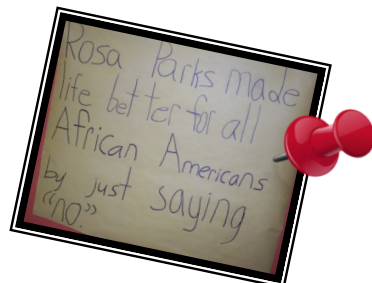 Rosa Parks made
life better for all
African Americans
by just saying
"no."